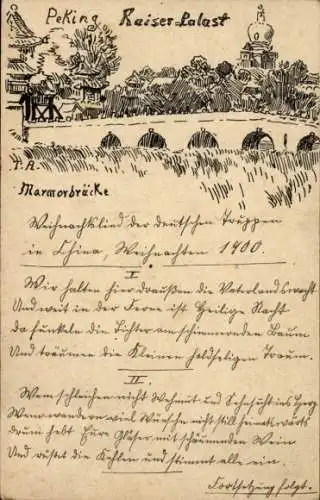 PeKing Kaiser-Palast
Marmorbrücke
Weihnachtslied der deutschen Truppen
in China, Weihnachten 1900.
I.
Wir halten hier draußen die Vaterlandswacht
Und weit in der Ferne ist Heilige Nacht
da funkeln die Lichter am schimmernden Baum
Und träumen die Kleinen holdseligen Traum.
II.
Wem schleichen nicht Wehmut und Sehnsucht ins Herz
Wem wandern viel Wünsche nicht still heimatwärts
drum hebt Eure Gläser mit schäumendem Wein
Und die Kehlen und stimmt alle ein,
Fortsetzung folgt.